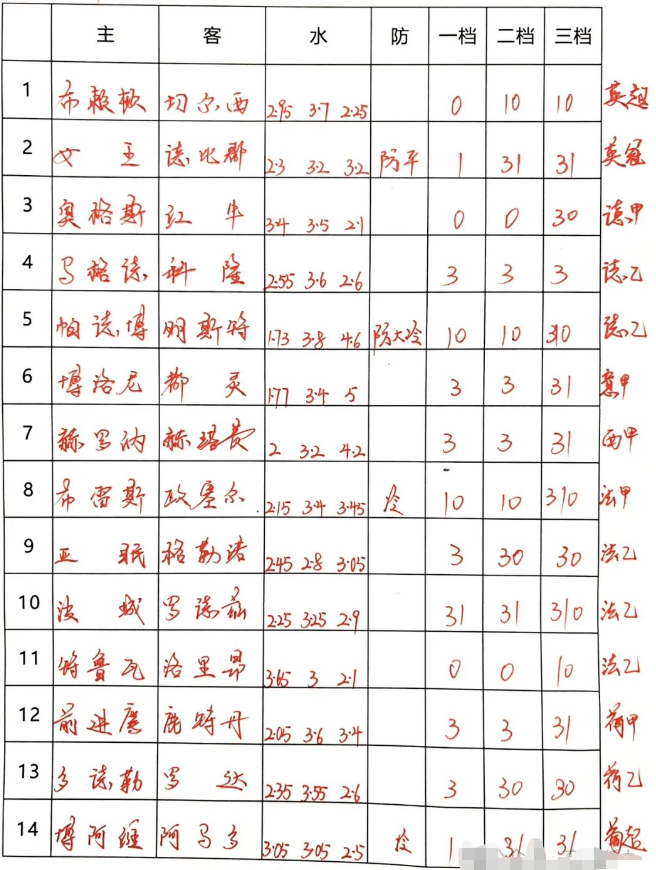 主 客 水 防 一档 二档 三档
1 布赖顿 切尔西 2.95 3.7 2.25 0 10 10 英超
2 女王 德比郡 2.3 3.2 3.2 防平 1 31 31 英冠
3 奥格斯 红牛 3.4 3.5 2.1 0 0 30 德甲
4 马格德 科隆 2.55 3.6 2.6 3 3 3 德乙
5 帕德博 明斯特 1.73 3.8 4.6 防大冷 10 10 310 德乙
6 博洛尼 都灵 1.77 3.4 5 3 3 31 意甲
7 赫罗纳 赫塔费 2 3.2 4.2 3 3 31 西甲
8 布雷斯 欧塞尔 2.15 3.4 3.45 冷 10 10 310 法甲
9 亚眠 格勒诺 2.45 2.8 3.05 3 30 30 法乙
10 波城 罗德兹 2.25 3.25 2.9 31 31 310 法乙
11 特鲁瓦 洛里昂 3.65 3 2.1 0 0 10 法乙
12 前进鹰 鹿特丹 2.05 3.6 3.4 3 3 31 荷甲
13 多德勒 罗达 2.35 3.55 2.6 3 30 30 荷乙
14 博阿维 阿马多 3.05 3.05 2.5 冷 1 31 31 葡超